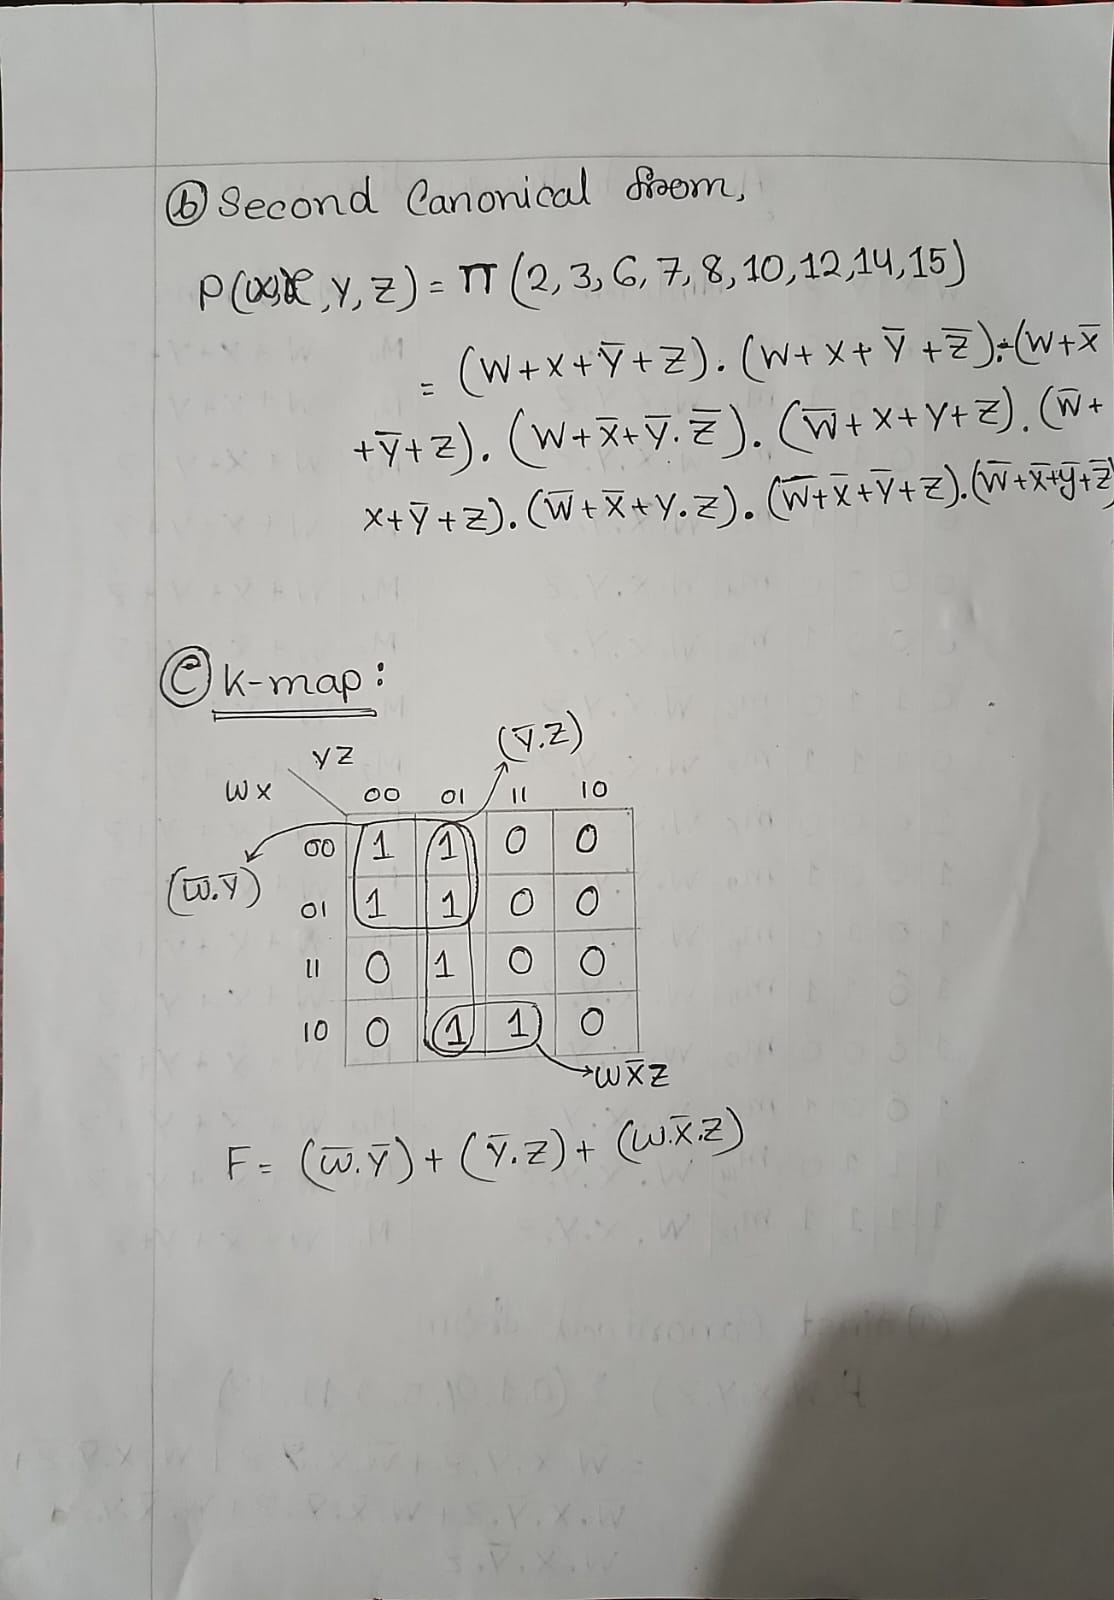 ⓑ Second Canonical from,
P(w,x,y,z) = π (2, 3, 6, 7, 8, 10, 12, 14, 15)
= (W+X+Y̅+Z). (W+X+Y̅+Z̅).(W+X̅
+Y̅+Z). (W+X̅+Y̅.Z̅). (W̅+X+Y+Z). (W̅+
X+Y̅+Z). (W̅+X̅+Y.Z). (W̅+X̅+Y̅+Z).(W̅+X̅+Y̅+Z̅)
Ⓒ K-map:
(Y̅.Z)
YZ
WX 00 01 11 10
00 1 1 0 0
(W̅.Y̅)
01 1 1 0 0
11 0 1 0 0
10 0 1 1 0
WX̅Z
F= (W̅.Y̅) + (Y̅.Z) + (W.X̅.Z)